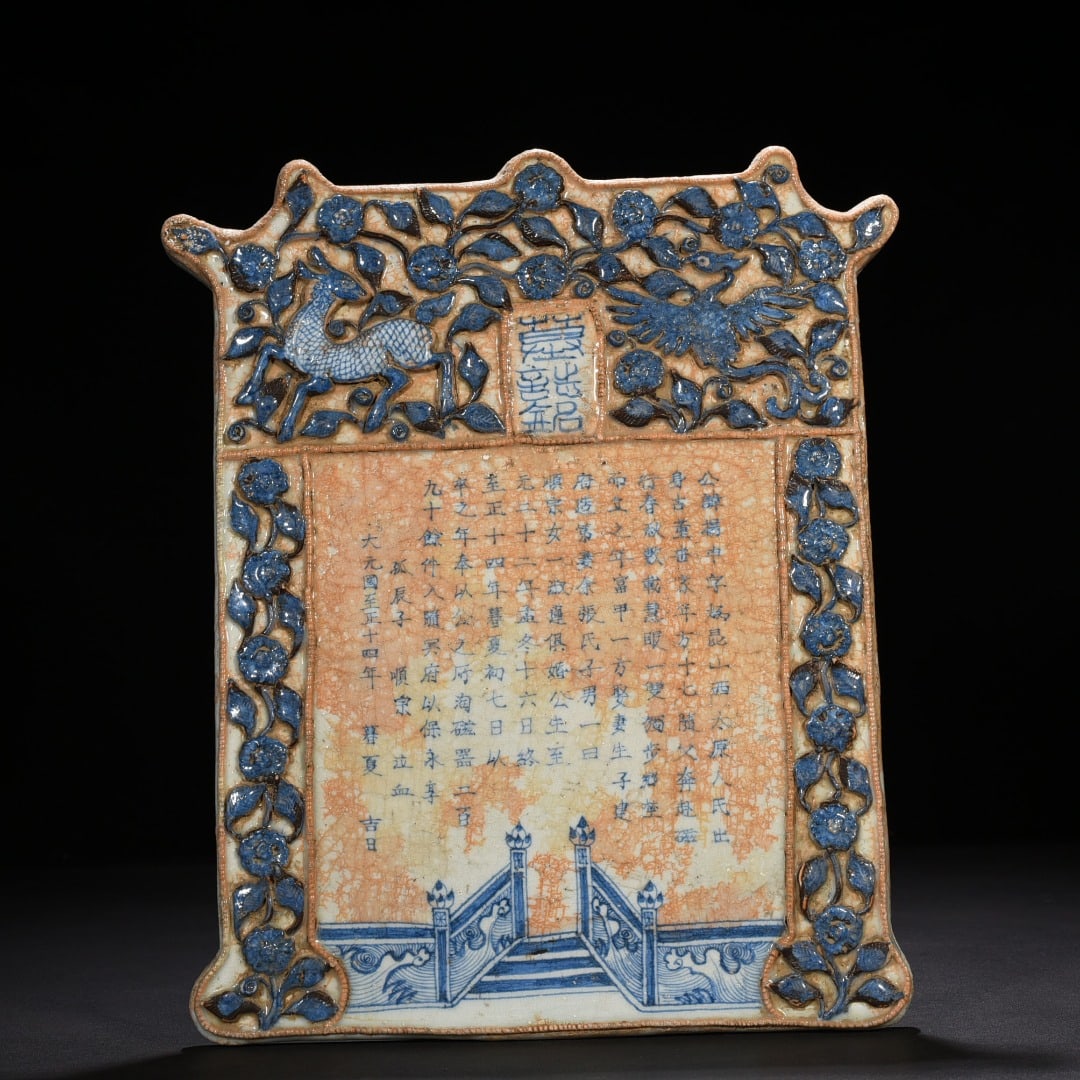 墓志銘
公諱揚申字振昆山西太原人氏出
身古董世家年方十七隨父奔赴磁
行春秋數載慧眼一雙獨步至
而立之年富甲一方娶妻生子建
府造第妻余張氏子男一曰
順宗女一淑蓮俱婚公生至
元二十二年孟冬十六日終
至正十四年暮夏初七日以
卒之年奉以公之所淘磁器二百
九十餘件入殯冥府以保永享
孤哀子 順宗 泣血
大元國至正十四年 暮夏 吉日